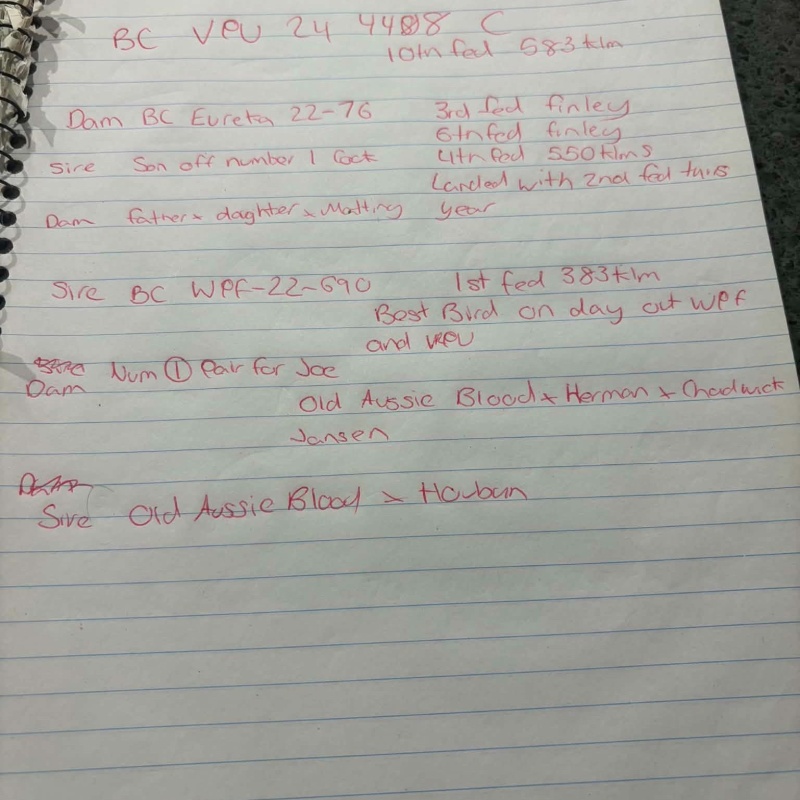 BC VPU 24 4408 C
10th fed 583 klm
Dam BC Eureka 22-76 3rd fed finley
6th fed finley
Sire Son off number 1 Cock 4th fed 550 klms
Landed with 2nd fed this
Dam father x daghter x Matting year
Sire BC WPF-22-690 1st fed 383 klm
Best Bird on day out WPF
and VPU
Num 1 Pair for Joe
Dam
Old Aussie Blood x Herman x Chadwick
Jansen
Sire Old Aussie Blood x Houban